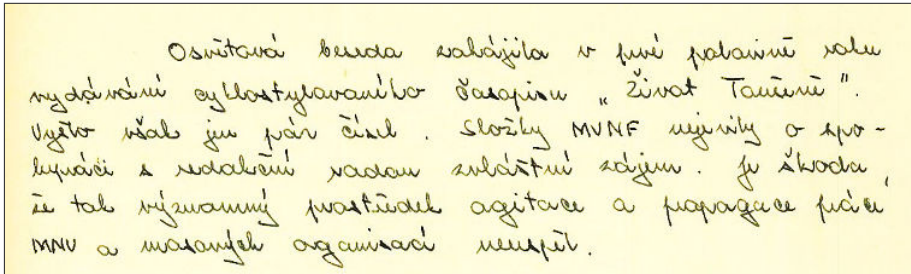 Osvětová beseda zahájila v prvé polovině roku
vydávání cyklostylovaného časopisu „Život Tančeně".
Vyšlo však jen pár čísel. Složky MVNF nejevily o spo-
lupráci s redakční radou zvláštní zájem. Je škoda,
že tak významný prostředek agitace a propagace práce
MNV a masových organisací neuspěl.